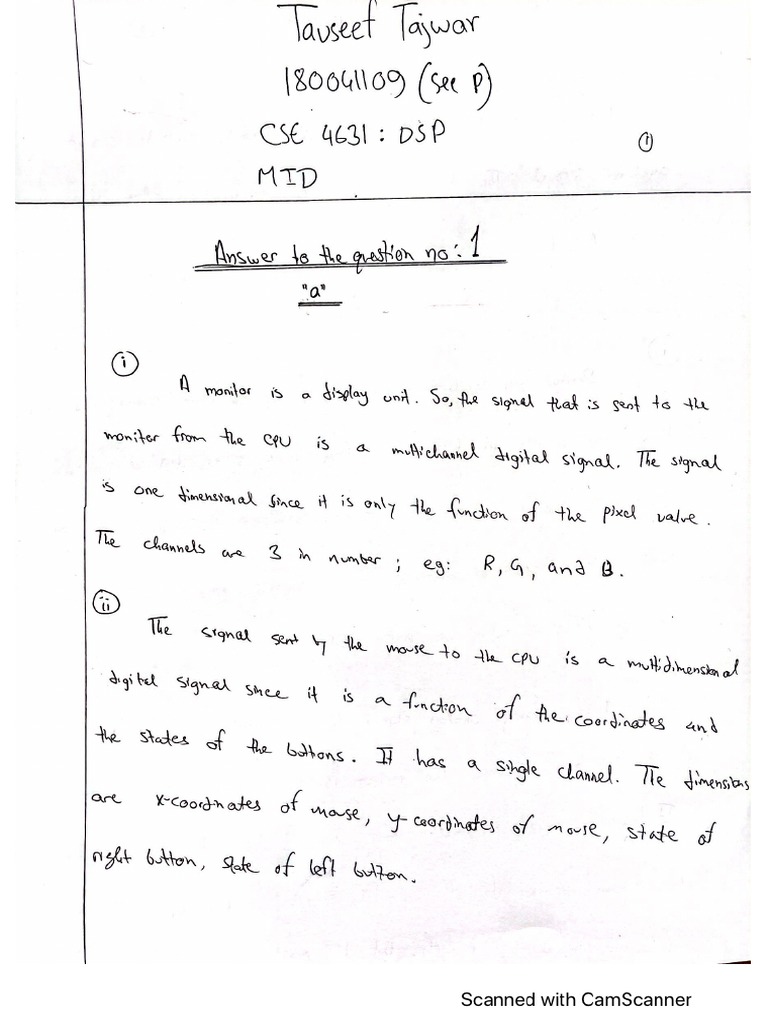 Tauseef Tajwar
180041109 (Sec P)
CSE 4631 : DSP
1
MID
Answer to the question no: 1
"a"
i
A monitor is a display unit. So, the signal that is sent to the
monitor from the CPU is a multichannel digital signal. The signal
is one dimensional since it is only the function of the pixel value.
The channels are 3 in number ; eg: R, G, and B.
ii
The signal sent by the mouse to the CPU is a multidimensional
digital signal since it is a function of the coordinates and
the states of the buttons. It has a single channel. The dimensions
are x-coordinates of mouse, y-coordinates of mouse, state of
right button, state of left button.
Scanned with CamScanner